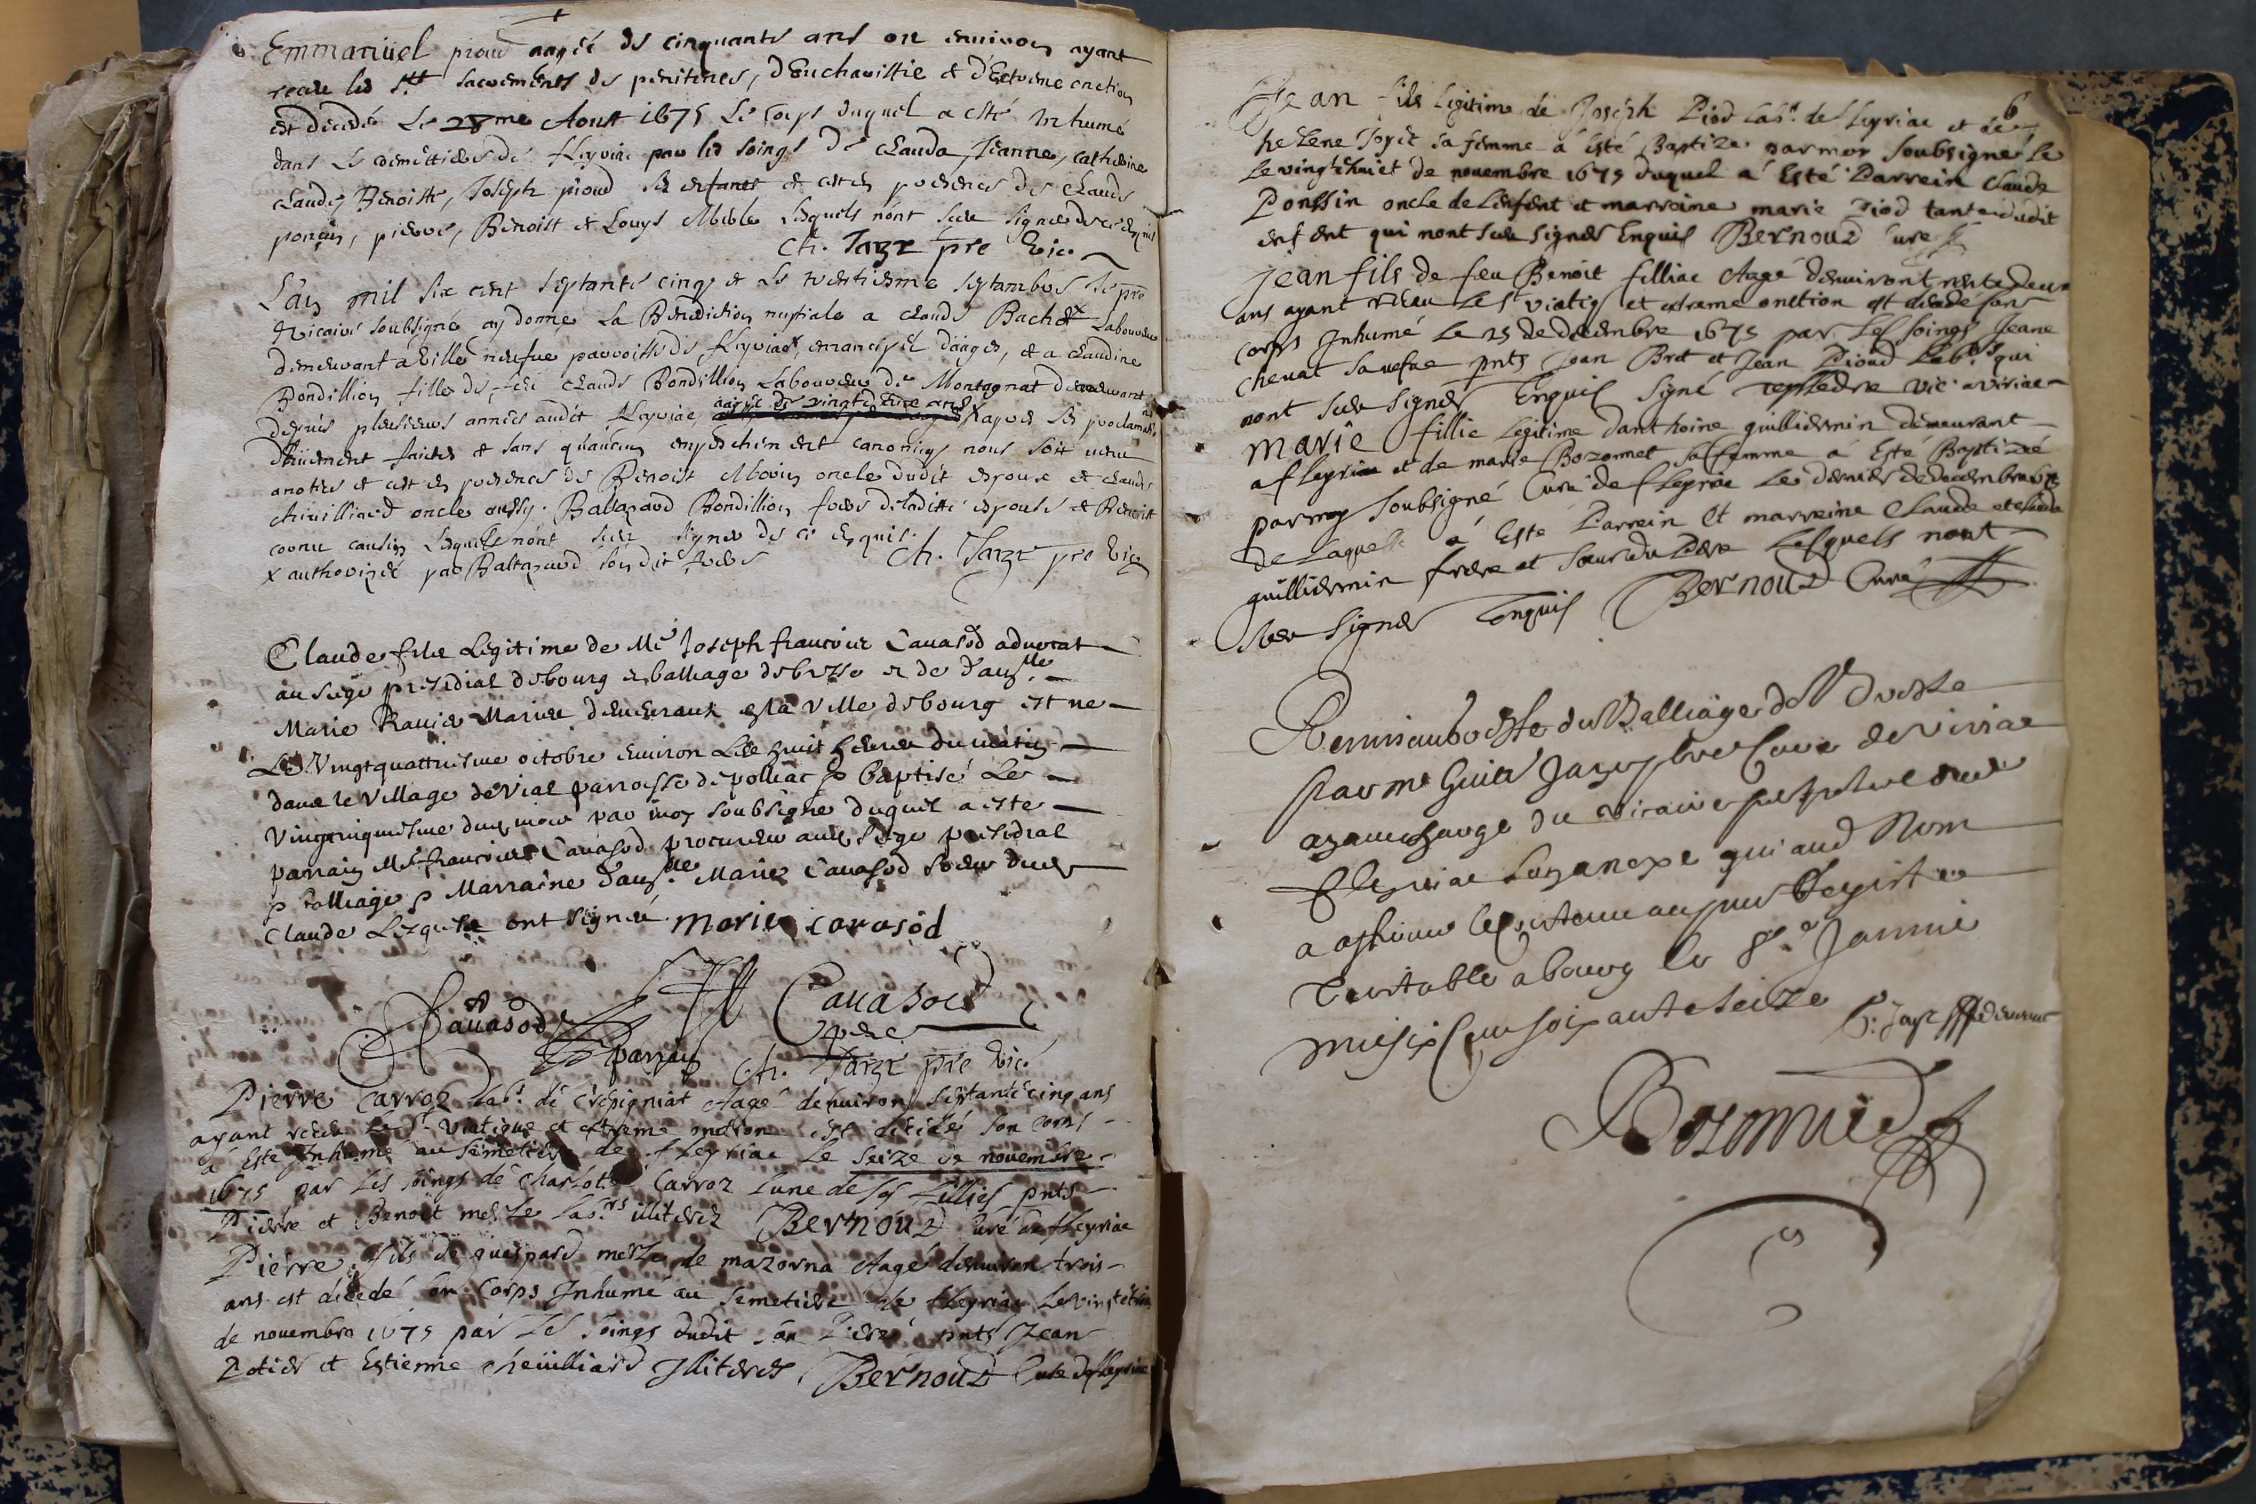 Emmanüel pioud aagéé de cinquante ans ou environ ayant
receu les Sts sacrements de penitence, d'Eucharistie et d'Extreme onction
est décédé Le 28me Aoust 1675 Le corps duquel a esté Inhumé
dans le cœmettiere de fleyria par les soings de clauda, Jeanne, catherine
claude, Benoiste, Joseph pioud ses enfants et cest en presence de claude
ponçin, pierre, Benoist et Louys Merle Lesquels n'ont sceu signer de ce enquis
Ch. Jazr pre vic.
L'an mil six cent septante cinq et le septambre Je pre
vicaire soubsigné ay donné La Benediction nuptiale a claude Bachet Laboureur
demeurant a ville neufve parroisse de fleyriat, emancipé d'aages, et a claudine
Bondillion fille de feu claude Bondillion Laboureur de Montagnat demeurant
depuis plusieurs années audit fleyriac, aagée de vingt ans X apres les proclamations
düement faites et sans qu'aucun empeschement canonicq nous soit venu
a notice et cest en presence de Benoist Morin oncle dudit espoux et claude
chivilliard oncle aussy. Baltazard Bondillion frere de ladite espouse et Benoist
cornu causin Lesquels n'ont sceu signer de ce enquis.
X authorizéé par Baltazard son dit frere Ch. Jazr pre vic
Claude fils Legitime de Me Joseph francois Cavasod advocat
au siege presidial de bourg et balliage de bresse et de damlle
Marie Ravier Mariez demeurant en la ville de bourg est ne
Le Vingtquattriesme octobre environ Les huit heures du matin
dans le village de Vial parroisse de polliac & baptisé Le
Vingtcinquiesme du mois par moy soubsigné duquel a este
parrain Me francois Cavasod procureur audit siege presidial
& balliage & Marraine damlle Marie Cavasod sœur dudit
Claude Lesquels ont signéé. Marie cavasod
Cavasod Cavasod
parrain pere
Ch. Jazr pre vic.
Pierre Carroz labr. de Crépigniat Aagé denviron septante cinq ans
ayant receu le St. Viatique et extreme onction est decédé son corps
a Esté Inhumé au semetiere de fleyriac Le seize de novembre
1675 par les soings de charlotte Carroz lune de ses fillies pnts
Pierre et Benoit merle labrs illiterez Bernoud curé de fleyriac
Pierre fils de guespard merle de mazorna Aagé denviron trois
ans est décédé son corps Inhumé au semetiere de fleyriac Le vingt
de novembre 1675 par Les soings dudit son Pere pnts Jean
Potier et Estienne cheüilliard Illiterez, Bernoud Curé de fleyriac
6
Jean fils legitime de Joséph Piod labr. de fleyriac et de
helene Joyet sa femme a esté Baptizé par moy soubsigné le
Le vingthuict de novembre 1675 duquel á Esté Parrein claude
Ponssin oncle de Lenfent et marreine marie Piod tante dudit
enfent qui nont sceu signer Enquis Bernoud Curé
Jean fils de feu Benoit filliac Aagé denviron trentedeux
ans ayant receu le St viatiq et extrame onction est decedé son
corps Inhumé le 25 de decenbre 1675 par Les soings Jeane
chevat sa vefve pnts Jean Bret et Jean Pioud labrs qui
nont sceu signer Enquis signé vic a viriac
Marie fillie legitime danthoine guilliermin demeurant
a fleyria et de marie Bozonnet sa femme á Esté Baptizéé
par moy soubsigné Curé de fleyriac Le dernier de decembre
de Laquelle á Esté Parrein et marreine Claude et
guilliermin frere et sœur du Pere Lesquels nont
sceu signer Enquis Bernoud Curé
Remis au Greffe du Balliage de Bresse
par me Guill. Jazr pbre Cure de Viriac
ayant charge du vicaire perpetuel
fleyriac son anexe qui aud Nom
a affirmé le contenu au pnt Registre
veritable a bourg le 8e. Janvie
mil six Cens soixante seize
Bozonnied